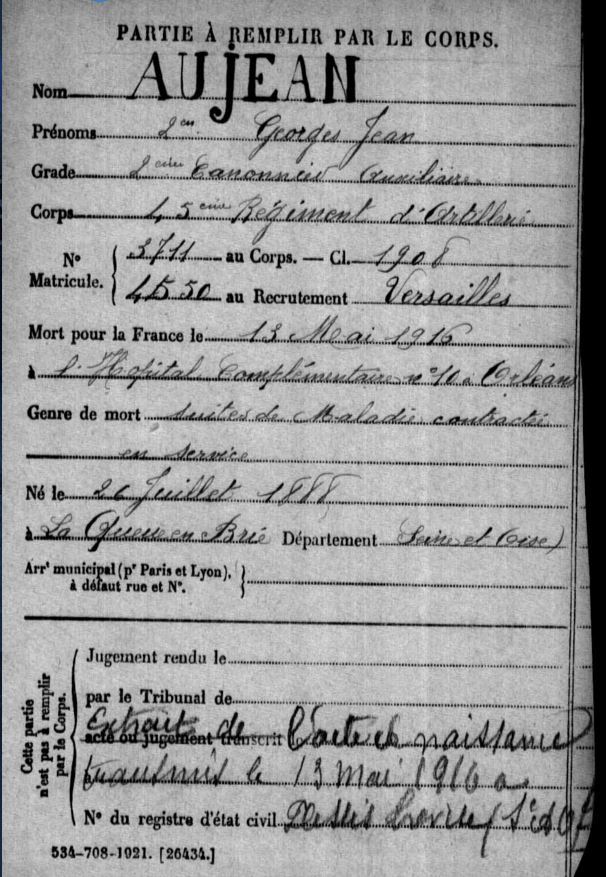 PARTIE À REMPLIR PAR LE CORPS.
Nom AUJEAN
Prénoms Georges Jean
Grade 2ème Canonnier Auxiliaire
Corps 45ème Régiment d'Artillerie
N° Matricule. { 3711 au Corps. — Cl. 1908
4550 au Recrutement Versailles
Mort pour la France le 13 Mai 1916
à l'Hôpital Complémentaire n° 10 à Orléans
Genre de mort Suites de Maladie contractée
en service
Né le 26 Juillet 1888
à La Queue en Brie Département Seine et Oise)
Arrt municipal (pr Paris et Lyon), à défaut rue et N°. }
Cette partie n'est pas à remplir par le Corps.
Jugement rendu le
par le Tribunal de
Extrait de
acte ou jugement transcrit l'acte de naissance
transmis le 13 mai 1916 a
N° du registre d'état civil
534-708-1921. [26434.]